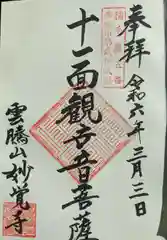 奉拝
令和六年三月三日
十一面観音菩薩
雲騰山妙覚寺